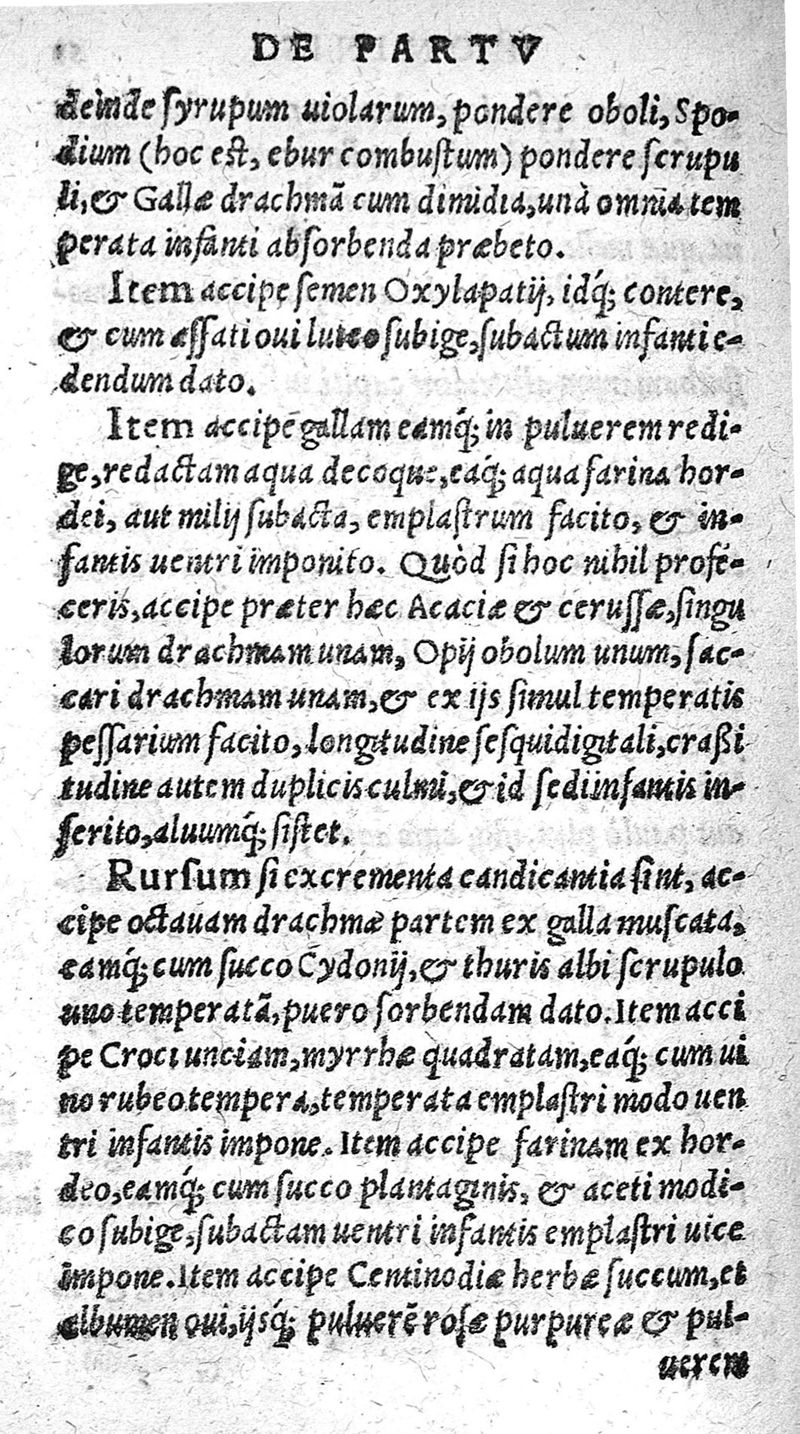 DE PARTV
deinde syrupum uiolarum, pondere oboli, Spo-
dium (hoc est, ebur combustum) pondere scrupu
li, & Gallæ drachmã cum dimidia, unà omnia tem
perata infanti absorbenda præbeto.
Item accipe semen Oxylapatij, idq́; contere,
& cum assati oui luteo subige, subactum infanti e-
dendum dato.
Item accipe gallam eamq́; in puluerem redi-
ge, redactam aqua decoque, eaq́; aqua farina hor-
dei, aut milij subacta, emplastrum facito, & in-
fantis uentri imponito. Quòd si hoc nihil profe-
ceris, accipe præter hæc Acaciæ & cerussæ, singu
lorum drachmam unam, Opij obolum unum, sac-
cari drachmam unam, & ex ijs simul temperatis
pessarium facito, longitudine sesquidigitali, craßi
tudine autem duplicis culmi, & id sedi infantis in-
serito, aluumq́; sistet.
Rursum si excrementa candicantia sint, ac-
cipe octauam drachmæ partem ex galla muscata,
eamq́; cum succo Cydonij, & thuris albi scrupulo
uno temperatã, puero sorbendam dato. Item acci
pe Croci unciam, myrrhæ quadratam, eaq́; cum ui
no rubeo tempera, temperata emplastri modo uen
tri infantis impone. Item accipe farinam ex hor-
deo, eamq́; cum succo plantaginis, & aceti modi-
co subige, subactam uentri infantis emplastri uice
impone. Item accipe Centinodiæ herbæ succum, et
albumen oui, ijsq́; puluerẽ rosæ purpureæ & pul-
uerem